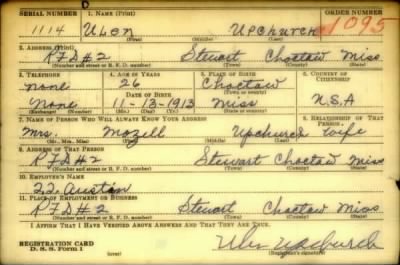 SERIAL NUMBER 1. NAME (Print) ORDER NUMBER
1114 ULEN UPCHURCH 1095
(First) (Middle) (Last)
2. ADDRESS (Print)
RFD#2 Stewart Choctaw Miss
(Number and street or R. F. D. number) (Town) (County) (State)
3. TELEPHONE 4. AGE IN YEARS 5. PLACE OF BIRTH 6. COUNTRY OF CITIZENSHIP
None 26 Choctaw
DATE OF BIRTH (Town or county)
None 11-13-1913 Miss U.S.A
(Exchange) (Number) (Mo.) (Day) (Yr.) (State or country)
7. NAME OF PERSON WHO WILL ALWAYS KNOW YOUR ADDRESS 8. RELATIONSHIP OF THAT PERSON
Mrs. Mozell Upchurch Wife
(Mr., Mrs., Miss) (First) (Middle) (Last)
9. ADDRESS OF THAT PERSON
RFD#2 Stewart Choctaw Miss
(Number and street or R. F. D. number) (Town) (County) (State)
10. EMPLOYER'S NAME
Austin
11. PLACE OF EMPLOYMENT OR BUSINESS
RFD#2 Stewart Choctaw Miss
(Number and street or R. F. D. number) (Town) (County) (State)
I AFFIRM THAT I HAVE VERIFIED ABOVE ANSWERS AND THAT THEY ARE TRUE.
REGISTRATION CARD
D. S. S. Form 1 (over) Ulen Upchurch
(Registrant's signature)